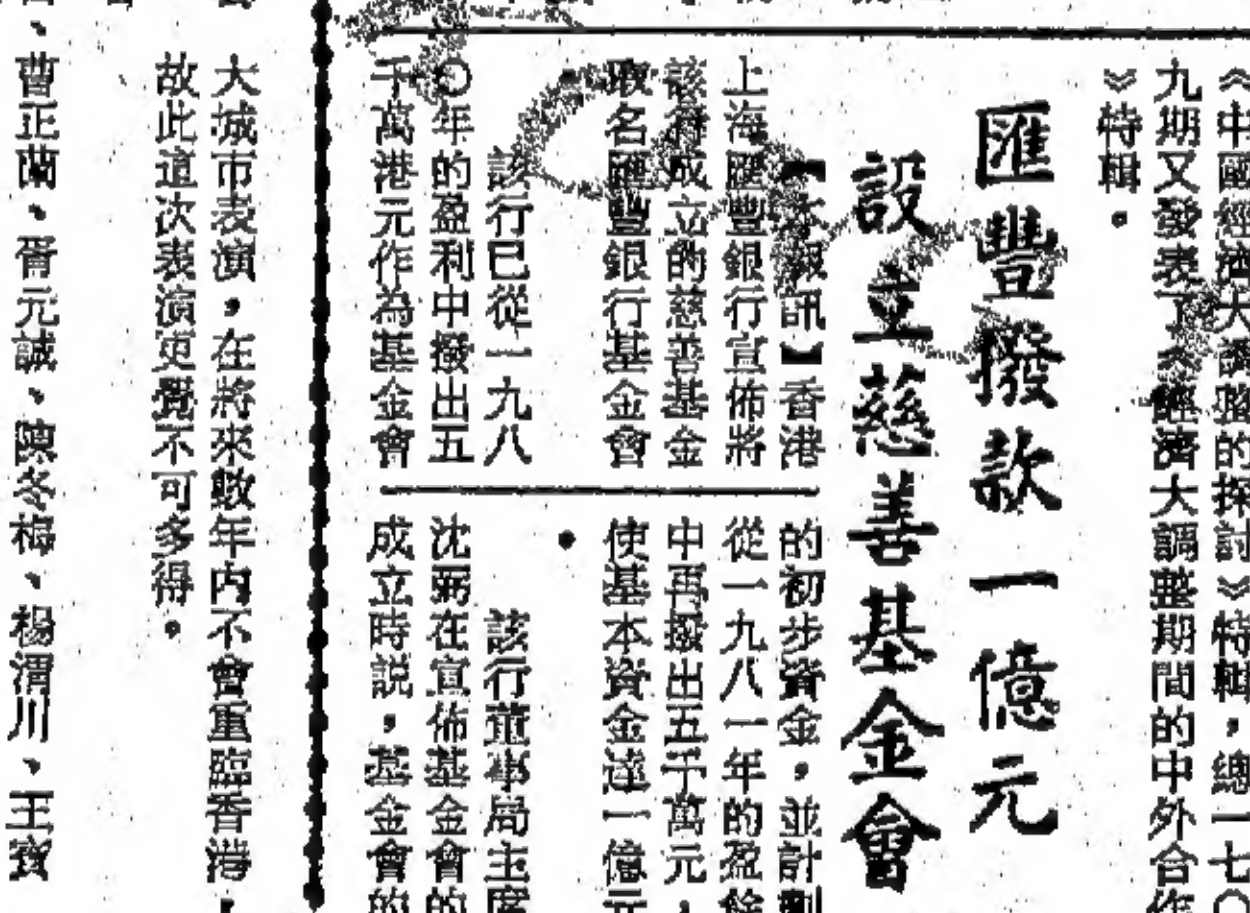 《中國經濟大調整的探討》特輯，總一七〇
九期又發表了《經濟大調整期間的中外合作
》特輯。
匯豐撥款一億元
設立慈善基金會
【本報訊】香港
上海匯豐銀行宣佈將
該將成立的慈善基金
取名匯豐銀行基金會
。
該行已從一九八
〇年的盈利中撥出五
千萬港元作為基金會
的初步資金，並計劃
從一九八一年的盈餘
中再撥出五千萬元，
使基本資金達一億元
。
該行董事局主席
沈弼在宣佈基金會的
成立時説，基金會的
大城市表演，在將來數年內不會重臨香港，
故此這次表演更覺不可多得。
、曹正蘭、胥元誠、陳冬梅、楊渭川、王寶